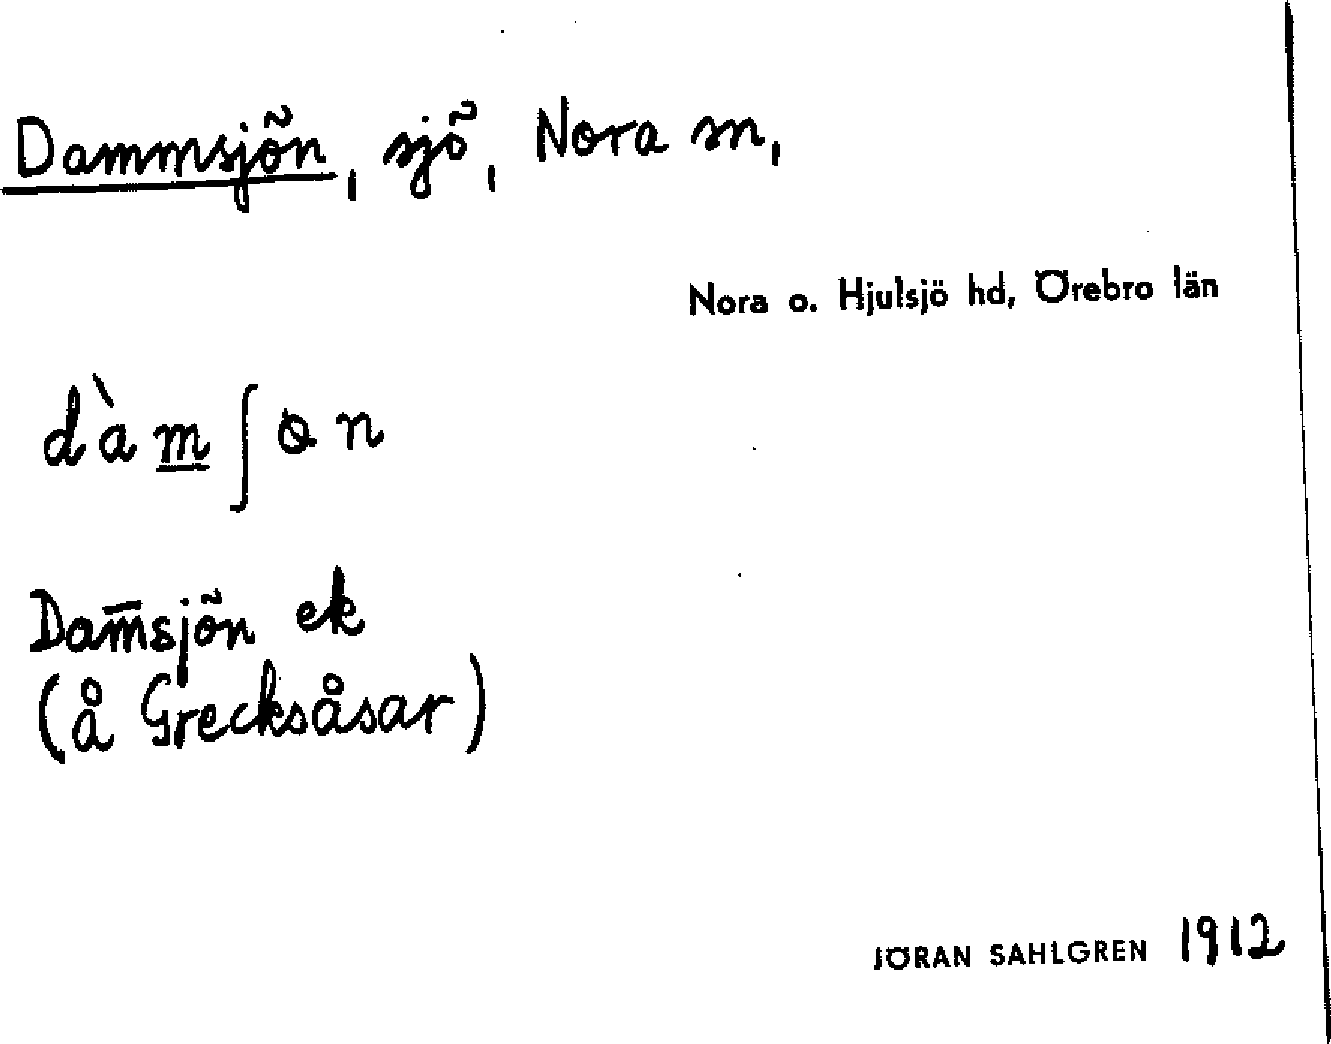 Dammsjön, sjö, Nora sn,
Nora o. Hjulsjö hd, Örebro län
dàm̲ʃɵn
Dam̅sjön ek
(å Grecksåsar)
JÖRAN SAHLGREN 1912